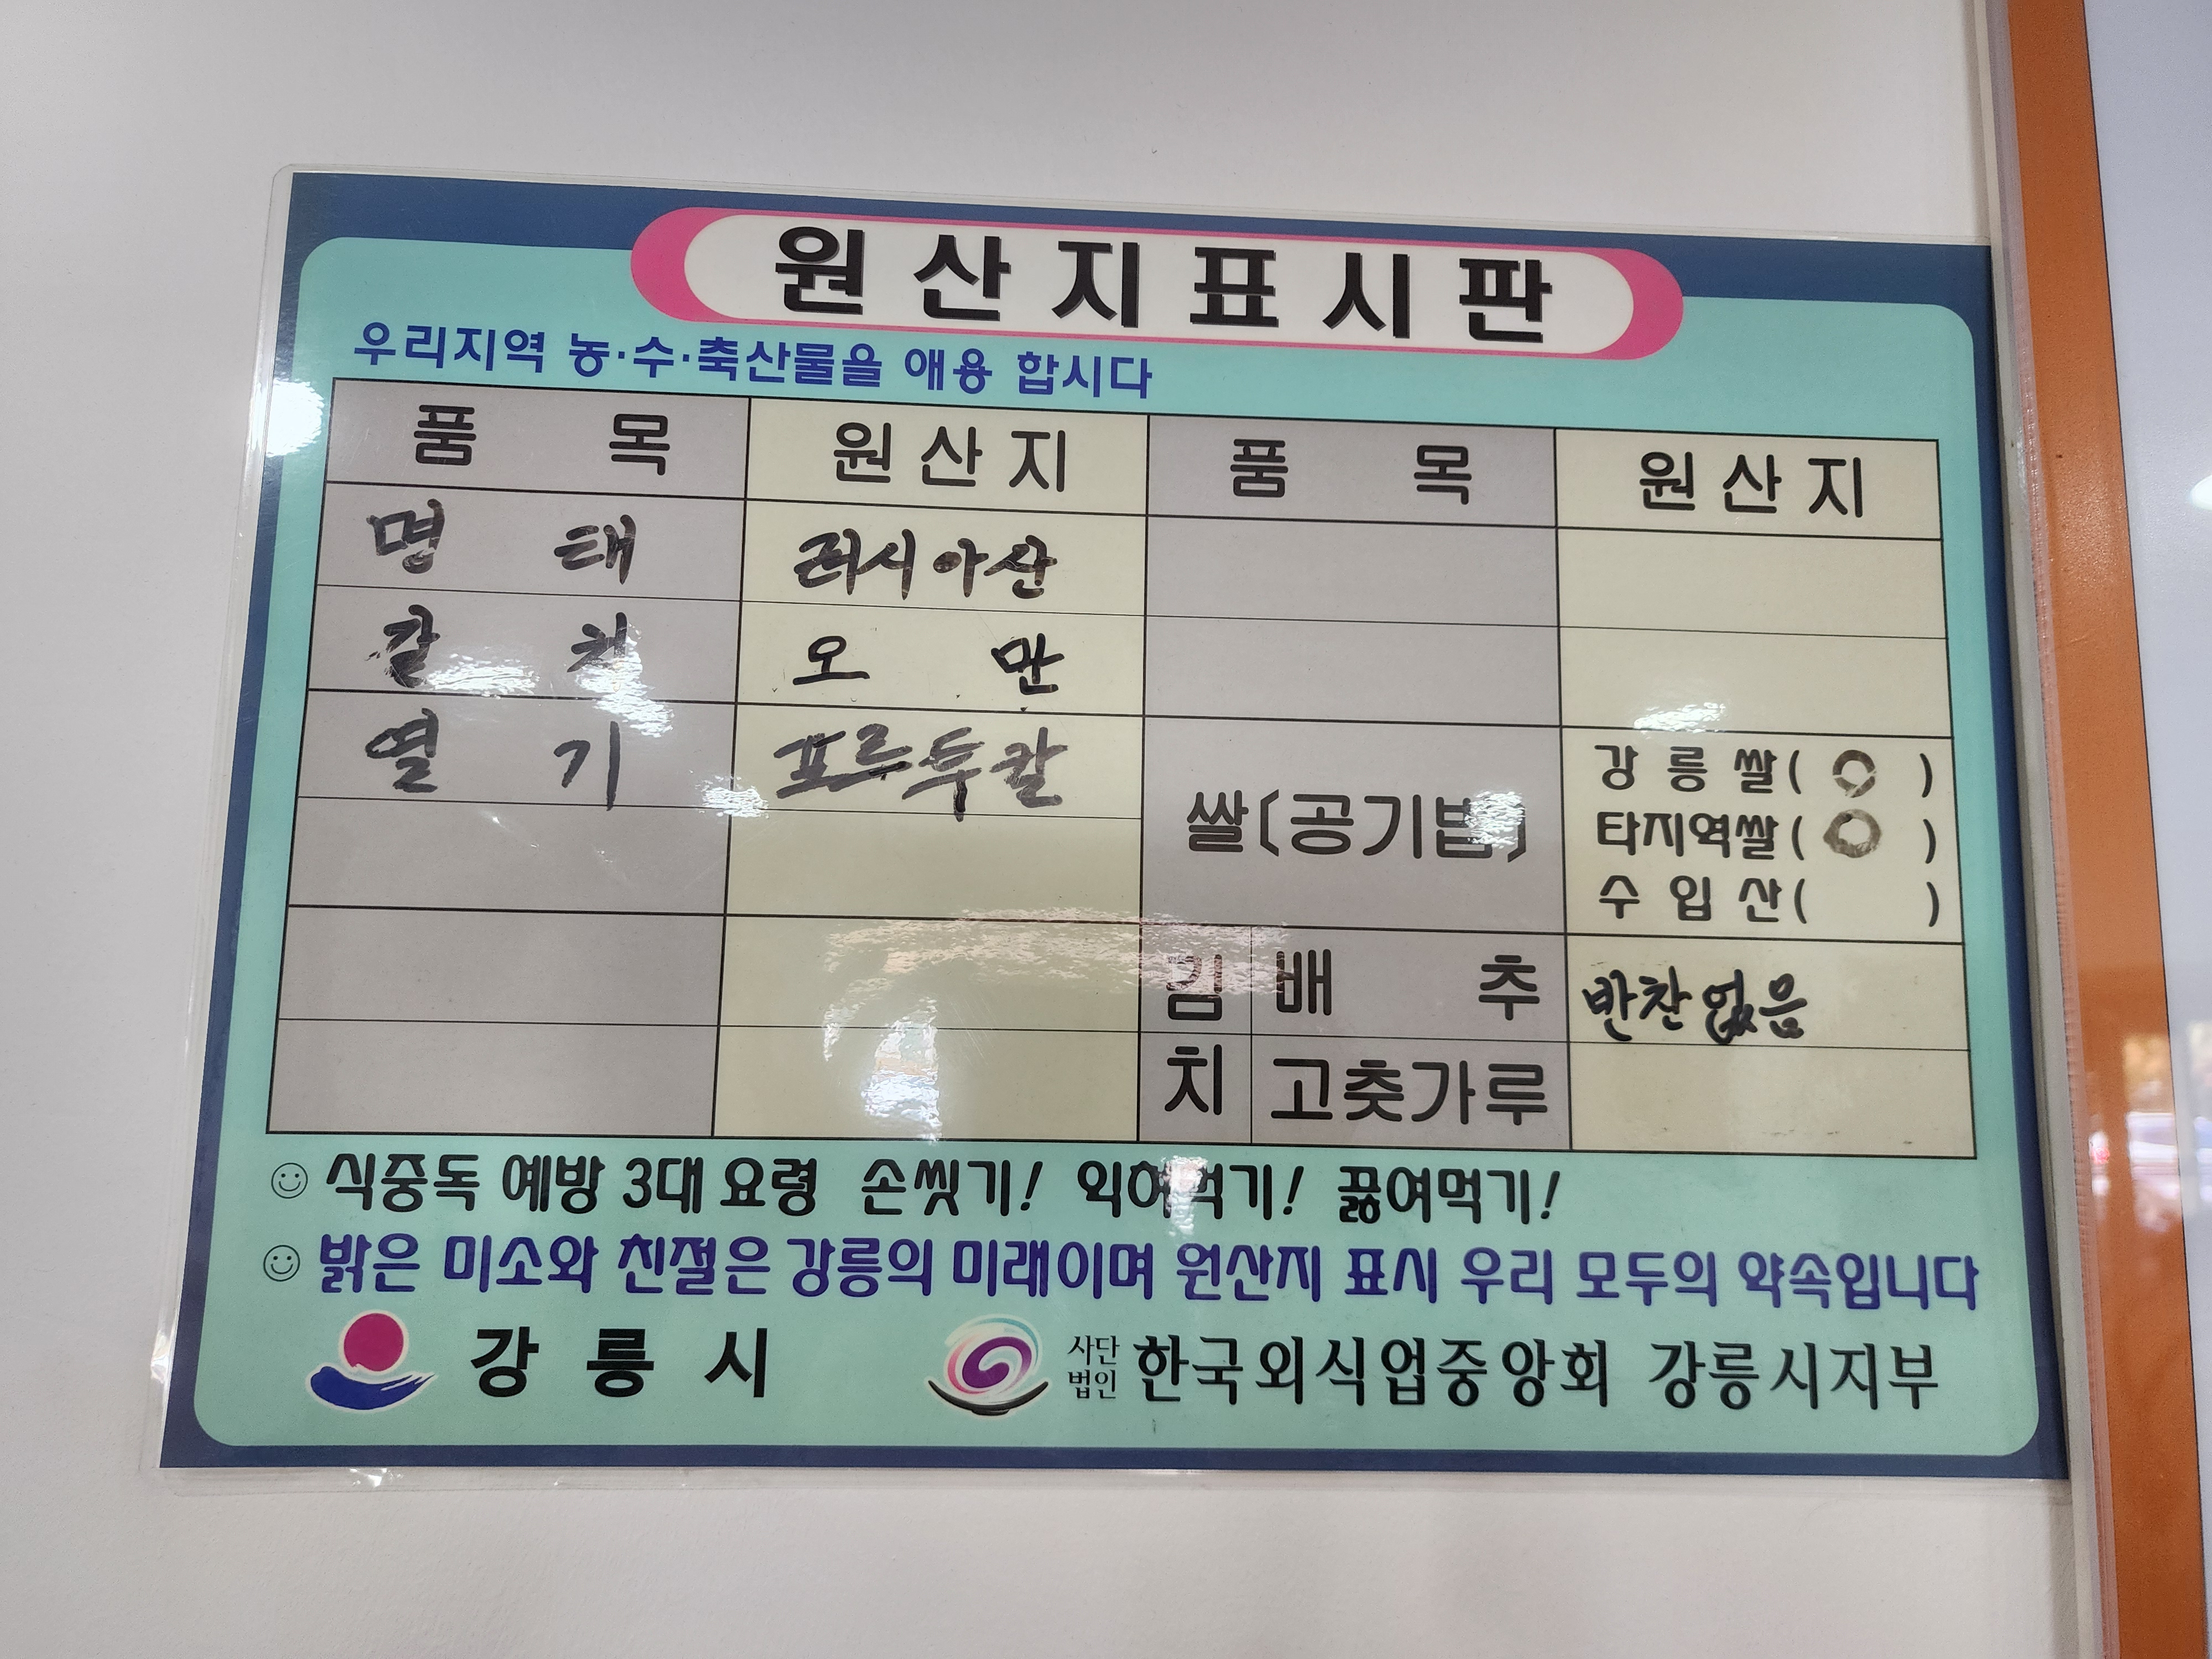 원산지표시판
우리지역 농·수·축산물을 애용 합시다
품목 원산지 품목 원산지
명태 러시아산
갈치 오만
열기 포루투칼
쌀(공기밥) 강릉쌀( ○ )
타지역쌀( ○ )
수입산( )
김치 배추 반찬없음
고춧가루
식중독 예방 3대 요령 손씻기! 익혀먹기! 끓여먹기!
밝은 미소와 친절은 강릉의 미래이며 원산지 표시 우리 모두의 약속입니다
강릉시 사단법인 한국외식업중앙회 강릉시지부